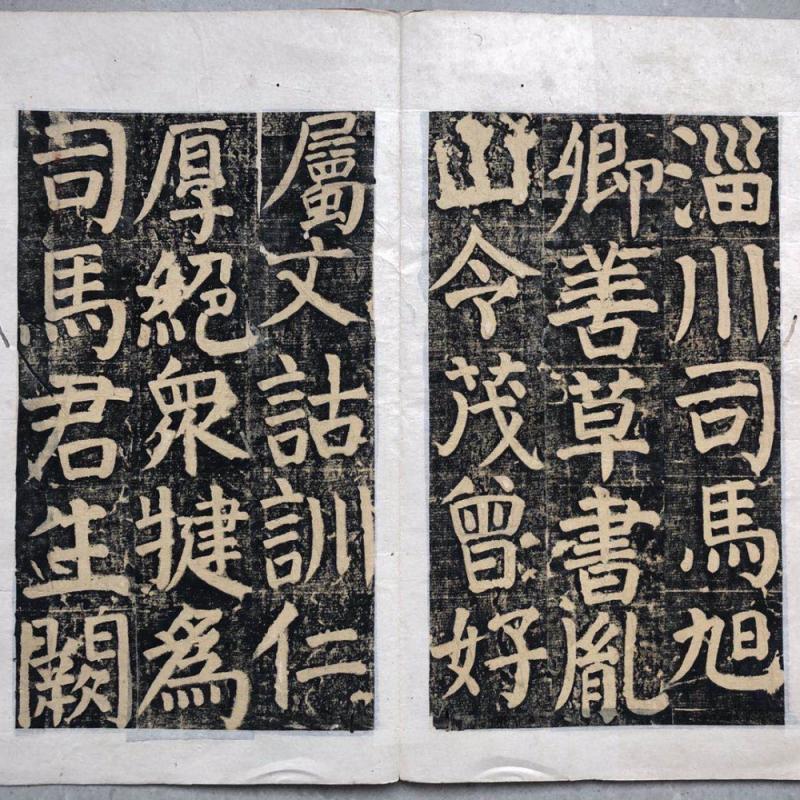 淄川司馬旭
卿善草書胤
山令茂曾好
屬文詁訓仁
厚絕衆犍為
司馬君生闕